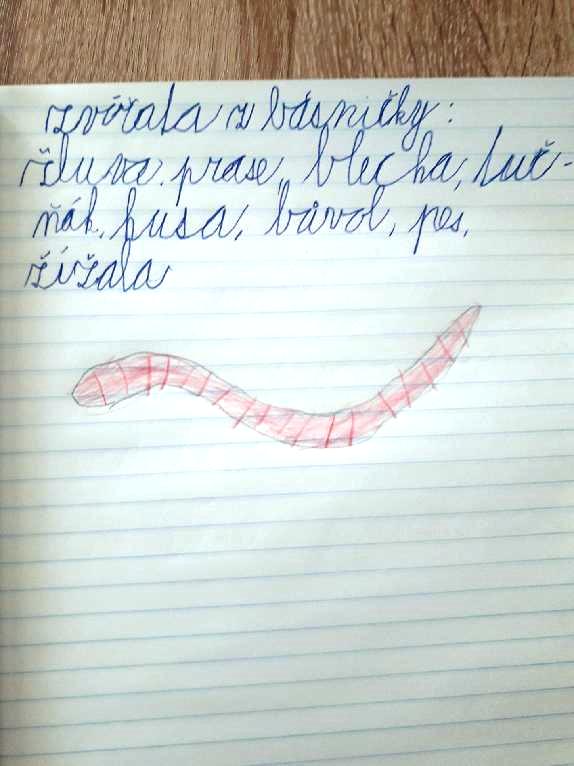 zvířata z básničky:
žluva. prase, blecha, tuč-
ňák, husa, bůvol, pes,
žížala